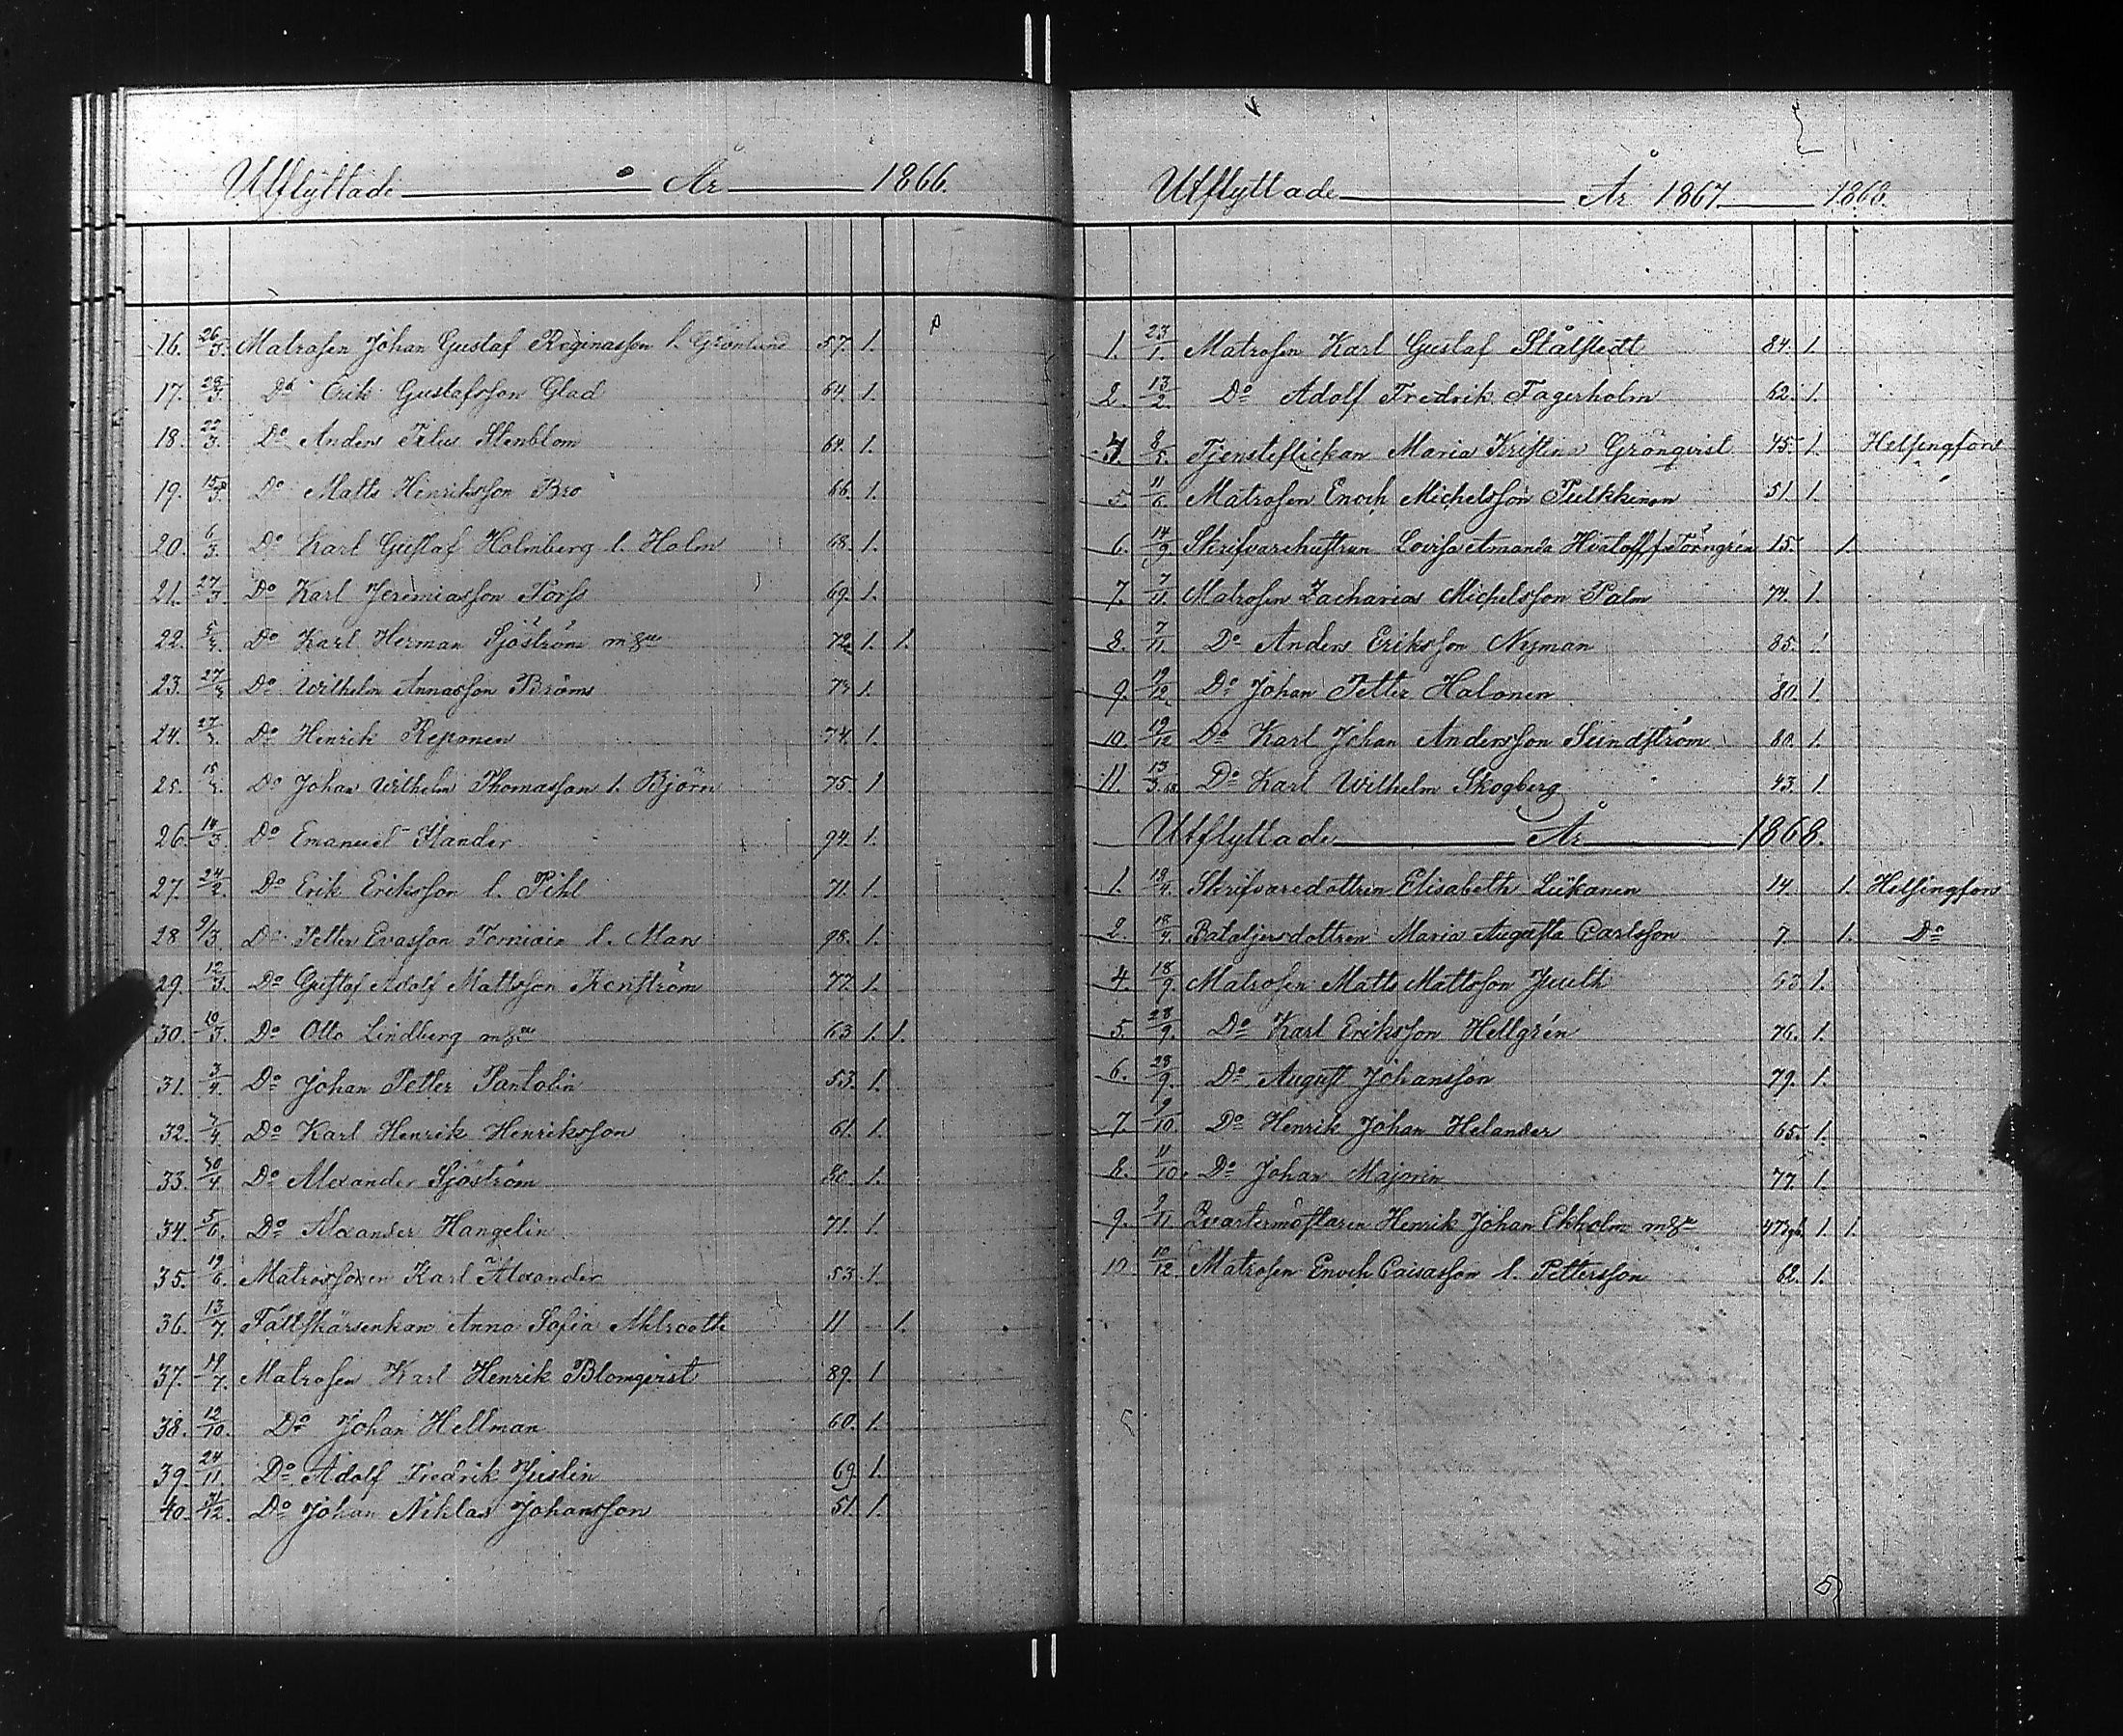 Utflyttade År 1866.
16. 26/3. Matrosen Johan Gustaf Reginasson l. Grönlund 57. 1.
17. 28/3. Do Erik Gustafsson Glad 64. 1.
18. 22/3. Do Anders Titus Stenblom 64. 1.
19. 15/3. Do Matts Henriksson Bro 66. 1.
20. 6/3. Do Karl Gustaf Holmberg l. Holm 68. 1.
21. 27/3. Do Karl Jeremiasson Forss 69. 1.
22. 5/3. Do Karl Herman Sjöström 72. 1. 1.
23. 27/3. Do Wilhelm Annasson Bröms 1.
24. 27/3. Do Henrik Reponen 74. 1.
25. 15/3. Do Johan Wilhelm Thomasson l. Björn 75 1
26. 14/3. Do Emanuel 94. 1.
27. 24/2. Do Erik Eriksson l. Pihl 71. 1.
28 9/3. Do Petter Evasson l. Mars 98. 1.
29. 12/3. Do Gustaf Adolf Mattsson 77. 1.
30. 19/3. Do Otto Lindberg 63 1. 1.
31. 3/4. Do Johan Petter Pantolin 53. 1.
32. /4. Do Karl Henrik Henriksson 61. 1.
33. 30/4. Do Alexander Sjöström 1.
34. 5/6. Do Alexander Hangelin 71. 1.
35. 19/6. Karl Alexander 53. 1.
36. 13/7. Fältskärsenkan Anna Sofia Ahlrooth 11 1.
37. 19/7. Matrosen Karl Henrik Blomqvist 89. 1
38. 12/10. Do Johan Hellman 60. 1.
39. 24/11. Do Adolf Fredrik Juslin 69. 1.
40. /12. Do Johan Niklas Johansson 51. 1.
Utflyttade År 1867 1868.
1. 23/1. Matrosen Karl Gustaf Stålstedt 84. 1.
2. 13/2. Do Adolf Fredrik Fagerholm 62. 1.
8/5. Tjensteflickan Maria Kristina Grönqvist 45. 1. Helsingfors
5. 11/6. Matrosen Enoch Michelsson Pulkkinen 51. 1.
6. 14/9. Skrifvarehustrun Lovisa Amanda f. Törngrén 15. 1.
7. 7/11. Matrosen Zacharias Michelsson Palm 1.
8. 7/11. Do Anders Eriksson Nyman 85. 1
9. 19/12. Do Johan Petter Halonen 80. 1.
10. 19/12 Do Karl Johan Andersson Sundström 80. 1.
11. 13/3.68. Do Karl Wilhelm Skogberg 43. 1.
Utflyttade År 1868.
1. 18/4. Skrifvaredottren Elisabeth Liikanen 14. 1. Helsingfors
2. 18/4. Bataljersdottren Maria Augusta Carlsson 7. 1. Do
4. 18/9. Matrosen Matts Mattsson Juuth 53. 1.
5. 28/9. Do Karl Eriksson Hellgrén 76. 1.
6. 28/9. Do August Johansson 79. 1.
7. 9/10. Do Henrik Johan Helander 65. 1.
8. 11/10. Do Johan Majorin 77. 1.
9. 9/11 Qvartermästaren Henrik Johan Ekholm 1. 1.
10 10/12 Matrosen Enoch Caisasson l. Pettersson 62. 1.